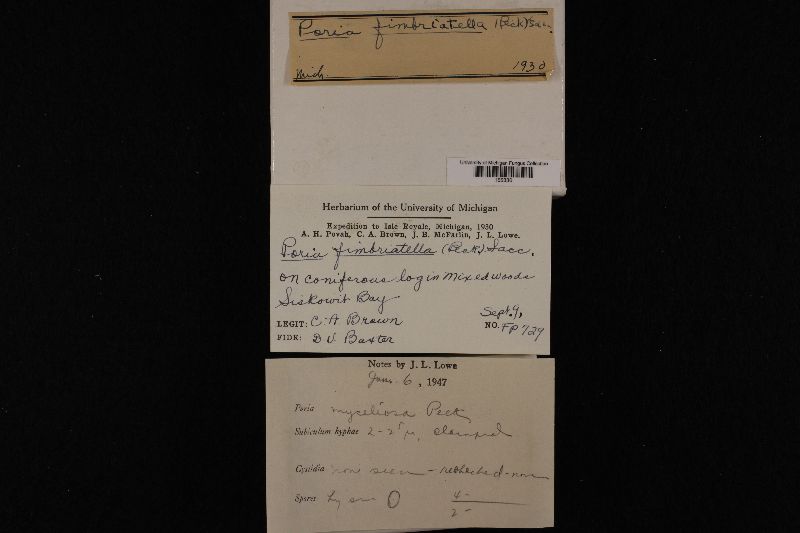 Poria fimbriatella (Peck) Sacc.
Mich. 1930
University of Michigan Fungus Collection
Herbarium of the University of Michigan
Expedition to Isle Royale, Michigan, 1930
A. H. Povah, C. A. Brown, J. B. McFarlin, J. L. Lowe.
Poria fimbriatella (Peck) Sacc.
on coniferous log in mixed woods
Siskowit Bay
Sept. 9,
LEGIT: C. A. Brown NO. FP 729
FIDE: D V Baxter
Notes by J. L. Lowe
Jan. 6, 1947
Poria myceliosa Peck
Subiculum hyphae 2-2 µ, clamped
Cystidia non seen - rechecked - non
Spores hy
4-
2-